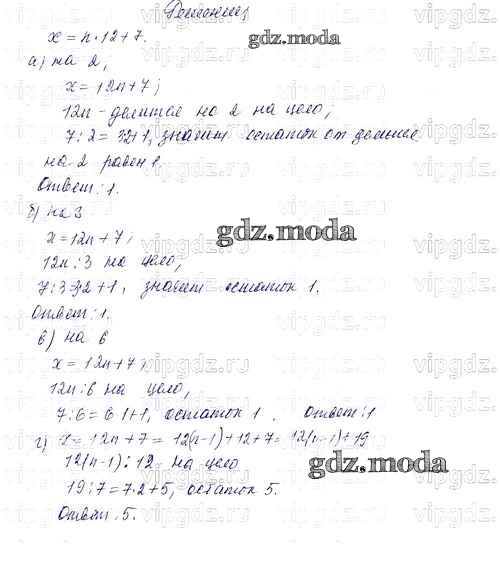 Решение
x = n·12+7.
gdz.moda
а) на 2;
x = 12n+7;
12n - делится на 2 на цело;
7:2= 3·2+1, значит остаток от деления
на 2 равен 1.
Ответ: 1.
б) на 3
x = 12n+7;
gdz.moda
12n:3 на цело,
7:3=3·2+1, значит остаток 1.
Ответ: 1.
в) на 6
x = 12n+7;
12n:6 на цело,
7:6=6·1+1, остаток 1. Ответ: 1
г) x = 12n+7 = 12(n-1)+12+7= 12(n-1)+19
12(n-1):12 на цело
gdz.moda
19:7=7·2+5, остаток 5.
Ответ: 5.